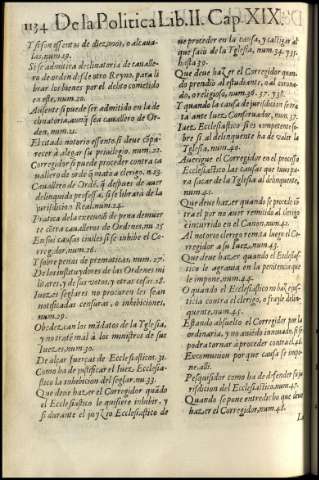 1134 De la Politica Lib. II. Cap. XIX.
Y si son essentos de diezmos, o alcaua-
las, num.19.
Si se admitira declinatoria de cauallero
ro de orden desde otro Reyno, para li-
brar los bienes por el delito cometido
en este, num.20.
Ausente si puede ser admitido en la de-
clinatoria, aunq̃ sea cauallero de Or-
den, num.21.
El citado notorio essento, si deue cõpa-
recer à alegar su priuilegio, num.22.
Corregidor si puede proceder contra ca
uallero de orde q̃ mato a clerigo, n.23.
Cauallero de Ordẽ, q̃ despues de auer
delinquido professa, si se librara de la
jurisdicion Real, num.24.
Pratica de la execuciõ de pena de muer
te cõtra caualleros de Ordenes, nu.25
En sus causas ciuiles si se inhibe el Co-
rregidor, num.26.
Y sobre penas de prematicas, num.27.
De los instituydores de las Ordenes mi
litares, y de sus votos, y otras cosas.28.
Iuezes seglares no procuren les sean
notificadas censuras, o inhibiciones,
num.29.
Obedezcan los mãdatos de la Yglesia,
y no tratẽ mal à los ministros de sus
Iuezes, num.30.
De alçar fuerças de Ecclesiasticos.31.
Como ha de justificar el Iuez Ecclesia-
stico la inhibicion del seglar, nu.33.
Que deue hazer el Corregidor quãdo
el Ecclesiastico le quisiere inhibir, y
si durante el juyzio Ecclesiastico de
ue proceder en la causa, y castigar al
que saco de la Yglesia, num.34. y 35.
hasta 39.
Que deue hazer el Corregidor quan-
do prendio al estudiante, o al coro-
nado, o religioso, num.36. 37. y 38.
Y quando la causa de jurisdicion se tra-
ta ante Iuez Conseruador, num.37.
Iuez Ecclesiastico si es competente so-
bre si al delinquente ha de valer la
Yglesia, num.40.
Auerigue el Corregidor en el processo
Ecclesiastico las causas que huuo pa-
ra sacar de la Yglesia al delinquente,
num.41.
Que deue hazer quando se procede cõ
tra el por no auer remitido al clerigo
è incurrido en el Canon, num.42.
Al notorio clerigo remita luego el Co-
rregidor a su Iuez, num.43.
Que deue hazer quando el Ecclesias-
tico le agrauia en la penitencia que
le impone, num.44.
O quando el Ecclesiastico no haze jus-
ticia contra el clerigo, o seglar delin-
quente, num.45.
Estando absuelto el Corregidor por la
ordinaria, y no auiendo innouado, si se
podra tornar à proceder contra el.46.
Excomunion por que causa se impo-
ne. alli.
Pesquisidor como ha de defender su ju-
risdicion del Ecclesiastico, num.47.
Quando se pone entredicho que deue
hazer el Corregidor, num.48.